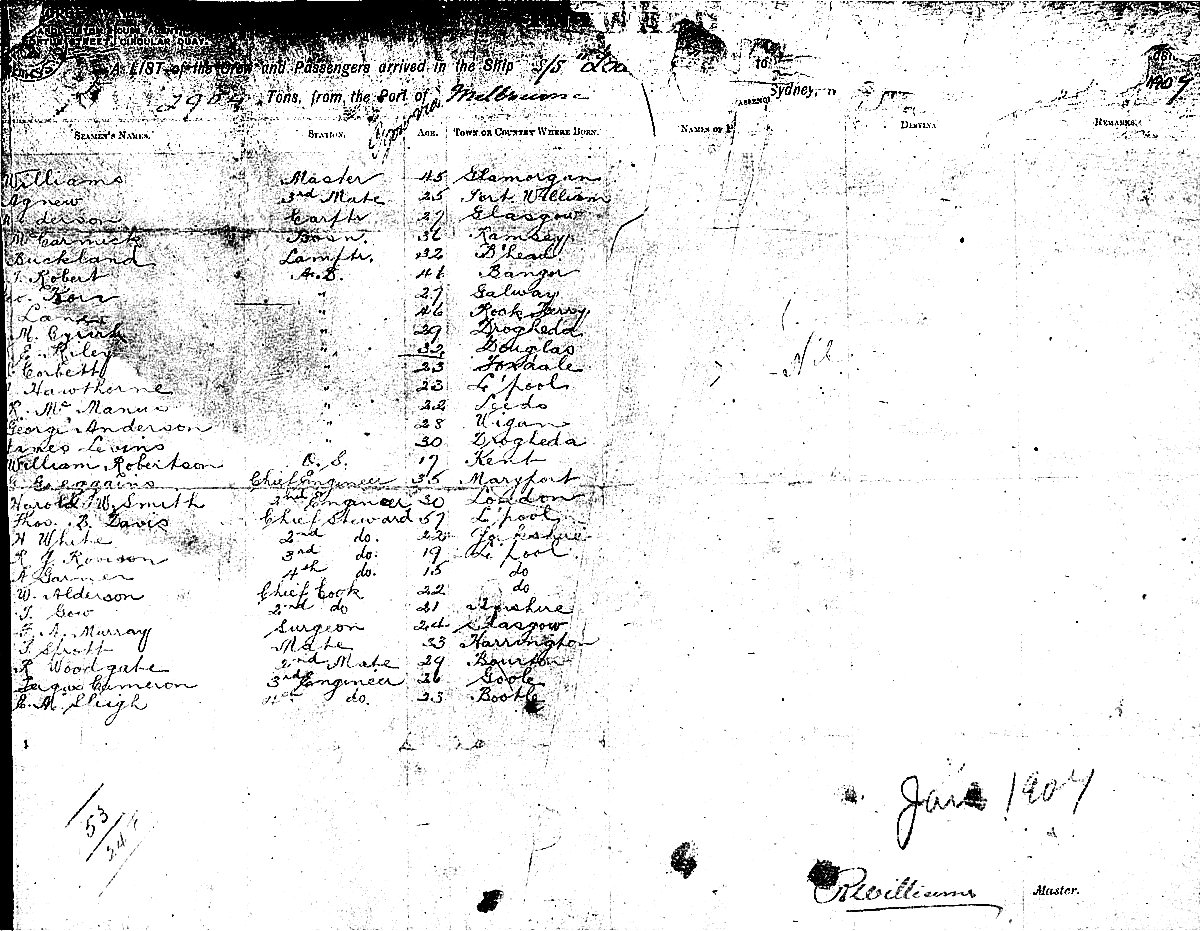 CUSTOM HOUSE AGENTS
STREET, CIRCULAR QUAY.
A LIST of the Crew and Passengers arrived in the Ship S/S
to
Tons, from the Port of Melbourne
Sydney,
SEAMEN'S NAMES. STATION. AGE. TOWN OR COUNTRY WHERE BORN. NAMES OF REMARKS.
Williams Master 45 Glamorgan
Agnew 3rd Mate 25 Fort William
Carptr 27 Glasgow
McCormick Bosn. 36 Ramsey
Buckland Lamptr. 32 B'head
Robert A.B. 41 Bangor
" 27 Galway
Lane " 46 Rock Ferry
M. " 29 Drogheda
E. Riley " 32 Douglas
Corbett " 23 Foxdale
Hawthorne " 23 L'pool
R. Mc Manus " 22 Leeds
George Anderson " 28 Wigan
James Levins " 30 Drogheda
William Robertson O.S. 17 Kent
Chief Engineer 35 Maryport
Harold W. Smith 2nd Engineer 30 London
Thos. B. Davis Chief Steward 57 L'pool
H White 2nd do. 22
R J Rowson 3rd do. 19 L'pool
A Garner 4th do. 15 do
W. Alderson Chief Cook 22 do
T. Gow 2nd do 21
F. A. Murray Surgeon 24 Glasgow
T. Sprott Mate 33 Harrington
R Woodgate 2nd Mate 29 Bourton
Fergus Cameron 3rd Engineer 26 Goole
E. M. Sleigh 4th do. 23 Bootle
Nil
53
Jan 1904
R Williams Master.